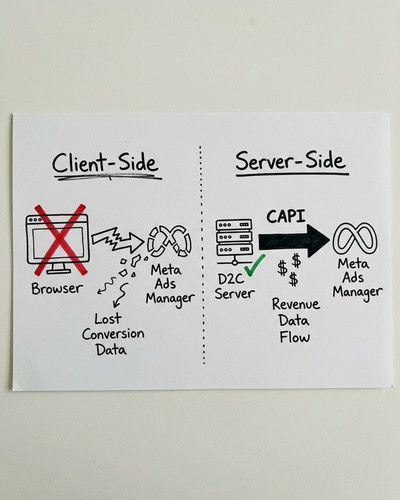 Client-Side
Browser
Meta
Ads
Manager
Lost
Conversion
Data
Server-Side
CAPI
D2C
Server
$
$
$
Revenue
Data
Flow
Meta
Ads
Manager